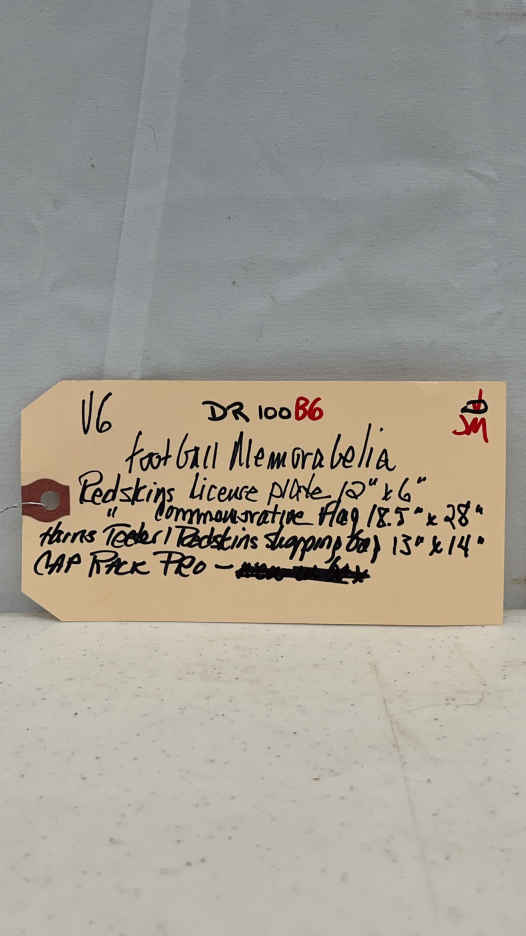 V6 DR 100 B6 JM
Football Memorabelia
Redskins License plate 12" x 6"
" Commemorative Flag 18.5" x 28"
Harris Teeter / Redskins shopping bag 13" x 14"
CAP RACK PRO -